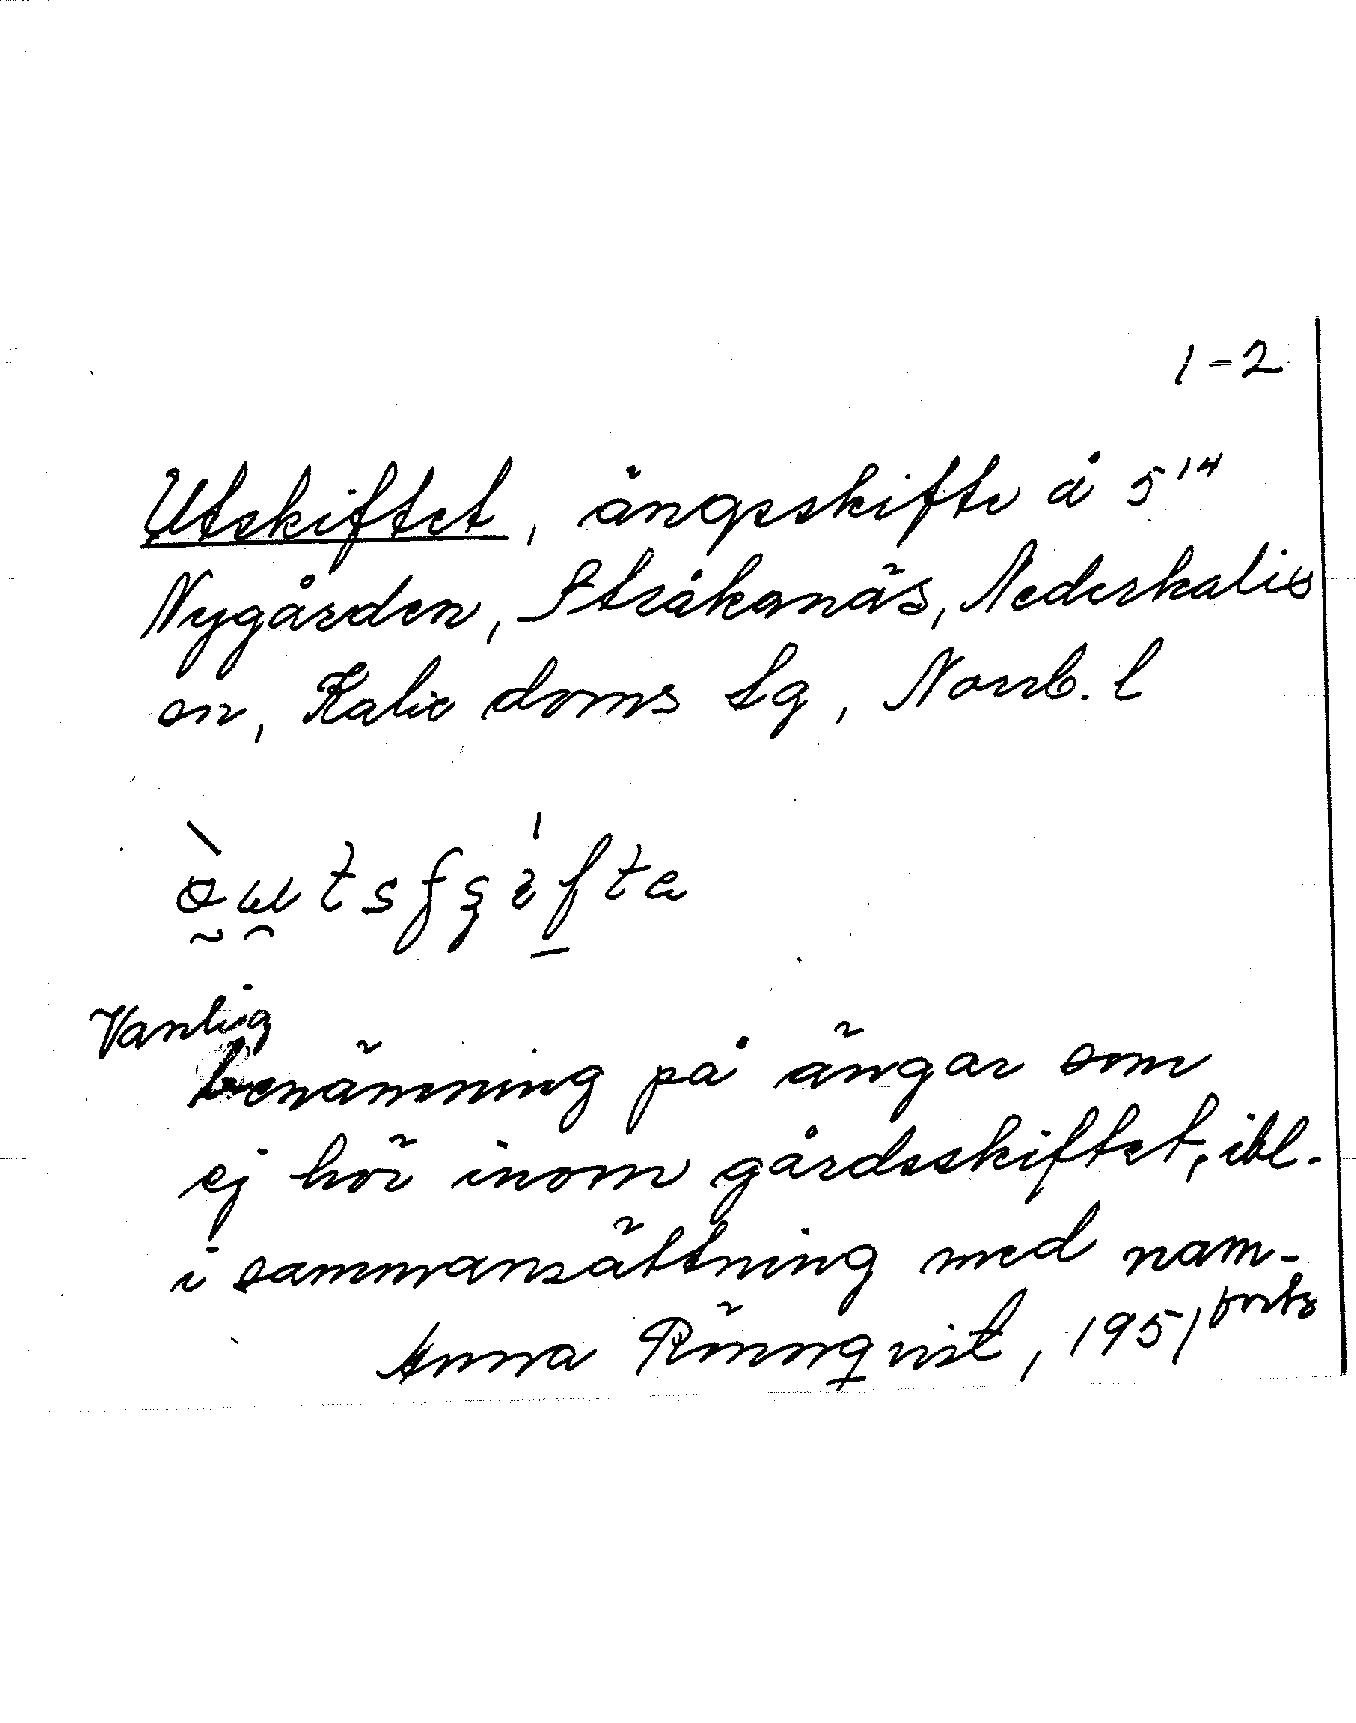 1-2
Utskiftet, ängsskifte å 5¹⁴
Nygården, Stråkanäs, Nederkalix
sn, Kalix doms Lg, Norrb. l
Vanlig
benämning på ängar som
ej hör inom gårdsskiftet, ibl.
i sammansättning med nam-
Anna Rönnqvist, 1951